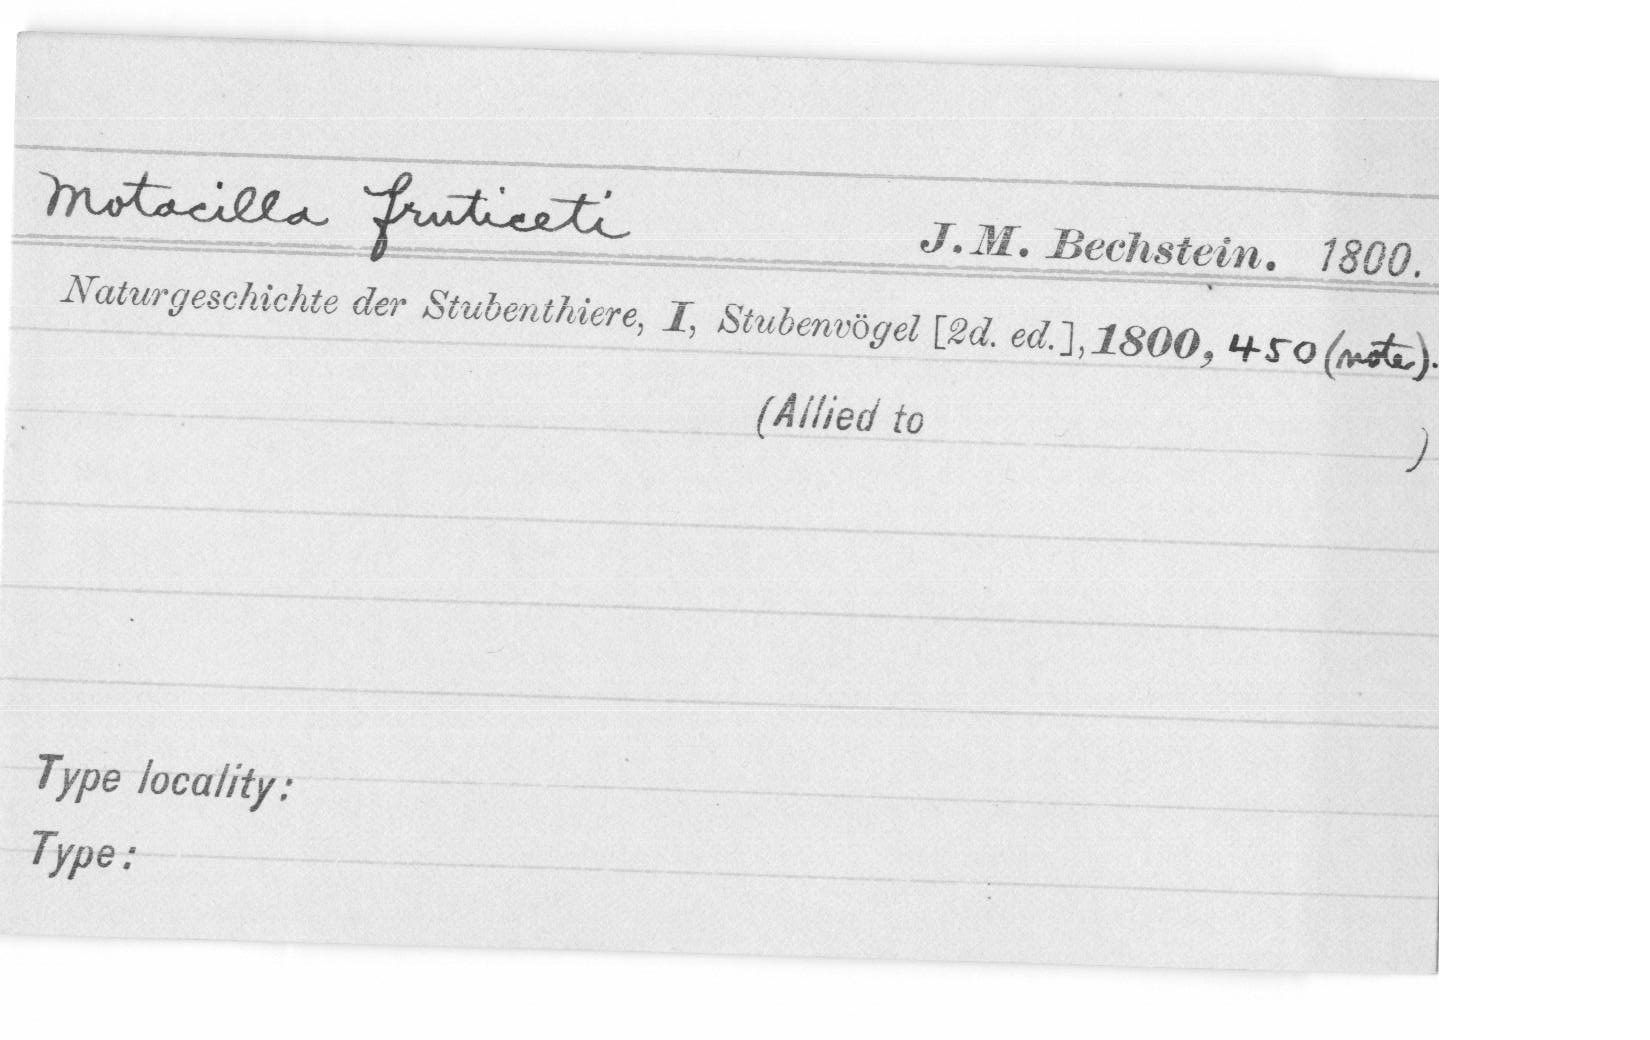 Motacilla fruticeti J. M. Bechstein. 1800.
Naturgeschichte der Stubenthiere, I, Stubenvögel [2d. ed.], 1800, 450 (note).
(Allied to )
Type locality:
Type: